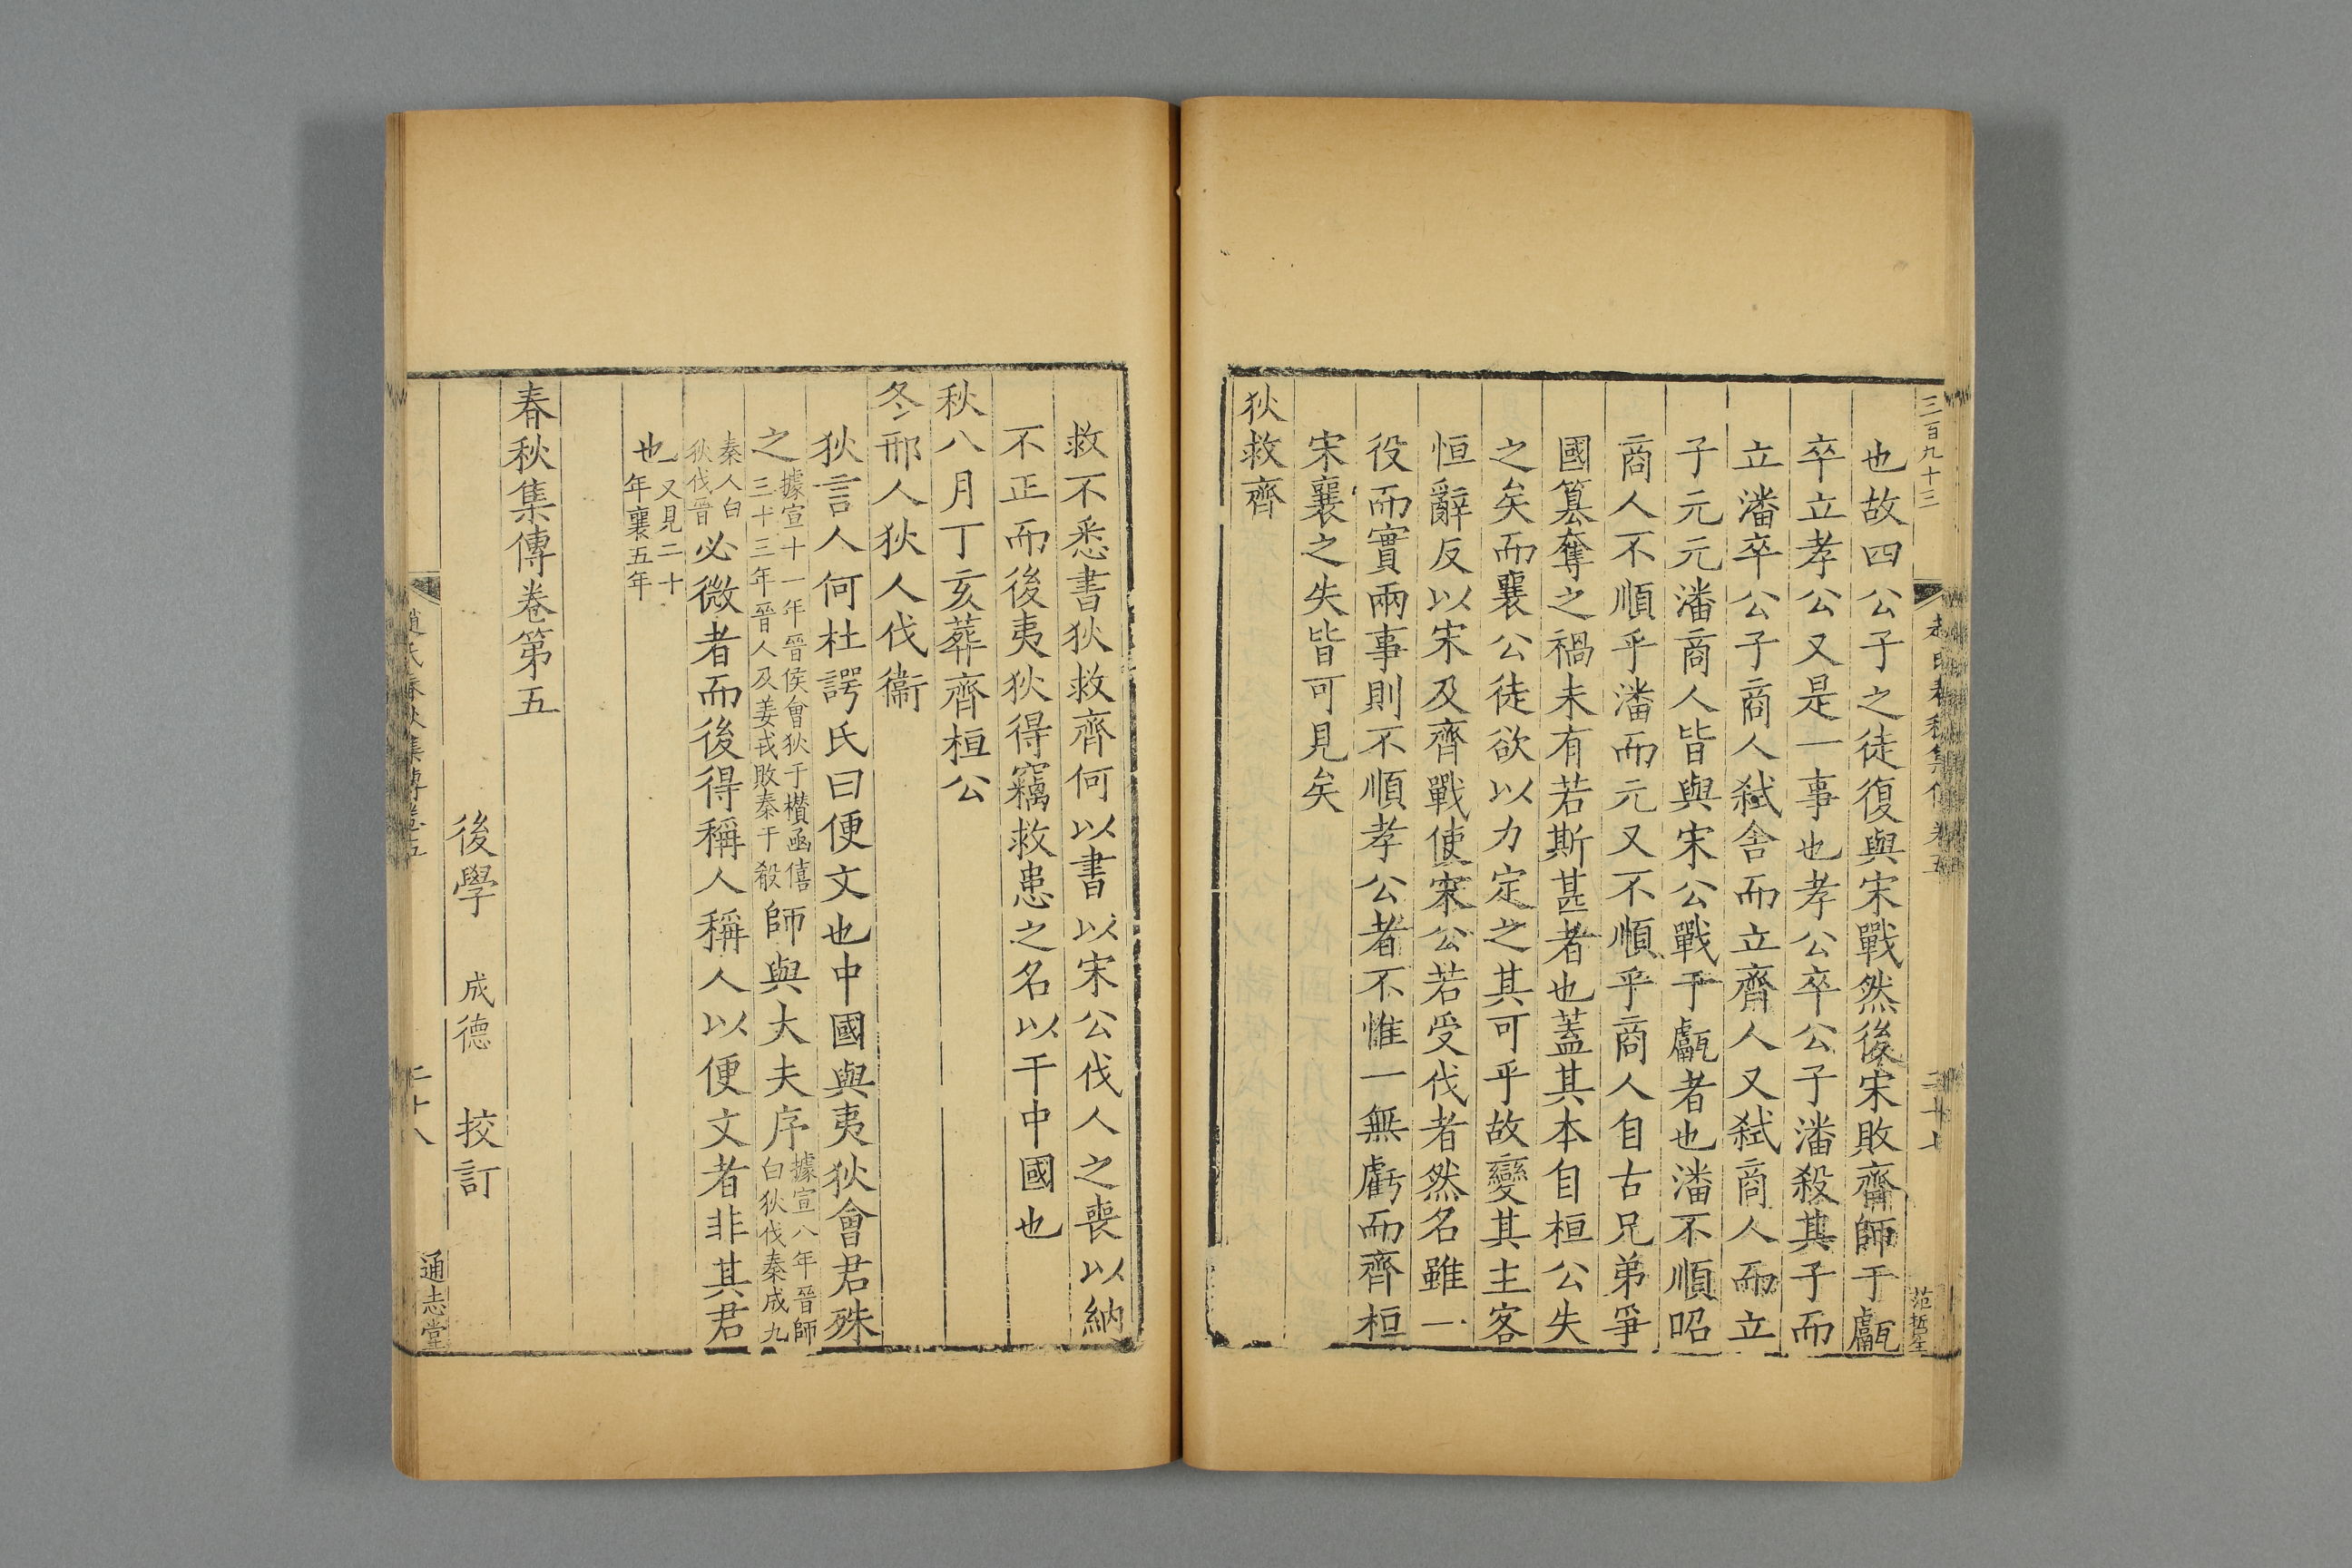 三百九十三
也故四公子之徒復與宋戰然後宋敗齊師于甗
卒立孝公又是一事也孝公卒公子潘殺其子而
立潘卒公子商人弑舍而立齊人又弑商人而立
子元元潘商人皆與宋公戰于甗者也潘不順昭
商人不順乎潘而元又不順乎商人自古兄弟爭
國篡奪之禍未有若斯甚者也蓋其本自桓公失
之矣而襄公徒欲以力定之其可乎故變其主客
恒辭反以宋及齊戰使宋公若受伐者然名雖一
役而實兩事則不順孝公者不惟一無虧而齊桓
宋襄之失皆可見矣
狄救齊
救不悉書狄救齊何以書以宋公伐人之喪以納
不正而後夷狄得竊救患之名以干中國也
秋八月丁亥葬齊桓公
冬邢人狄人伐衞
狄言人何杜諤氏曰便文也中國與夷狄會君殊
之據宣十一年晉侯會狄于欑函僖三十三年晉人及姜戎敗秦于殽師與大夫序據宣八年晉師白狄伐秦成九
秦人白狄伐晉必微者而後得稱人稱人以便文者非其君
也又見二十年襄五年
春秋集傳卷第五
後學 成德 挍訂
趙氏春秋集傳卷五
二十八
通志堂